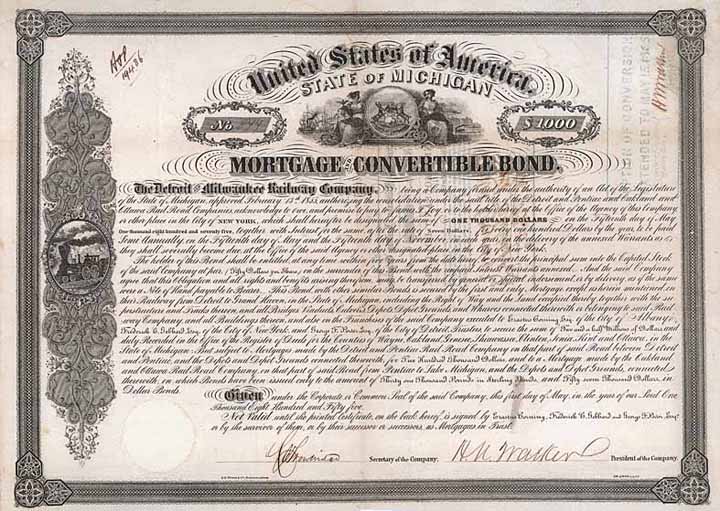 United States of America.
STATE OF MICHIGAN
No
$1000
MORTGAGE AND CONVERTIBLE BOND.
The Detroit and Milwaukee Railway Company, being a Company formed under the authority of an Act of the Legislature
of the State of Michigan, approved February 13th 1855, authorizing the consolidation under the said title of the Detroit and Pontiac and Oakland and
Ottawa Rail Road Companies, acknowledge to owe, and promise to pay to James F. Joy, or to the holder hereof, at the Office of the Agency of this Company
or other place in the City of NEW YORK, which shall hereafter be designated, the sum of ONE THOUSAND DOLLARS on the Fifteenth day of May
One thousand eight hundred and seventy five, together with Interest on the same, at the rate of Seven Dollars for every one hundred Dollars by the year, to be paid
Semi Annually, on the Fifteenth day of May and the Fifteenth day of November, in each year, on the delivery of the annexed Warrants as
they shall severally become due, at the Office of the said Agency or other designated place in the City of New York.
The holder of this Bond shall be entitled, at any time within years from the date hereof, to convert the principal sum into the Capital Stock
of the said Company at par, (Fifty Dollars per Share,) on the surrender of this Bond with the unpaid Interest Warrants annexed. And the said Company
agree that this Obligation and all rights and benefits arising therefrom, may be transferred by general or special endorsement or by delivery, as if the same
were a Note of Hand payable to Bearer. This Bond, with other similar Bonds is secured by the first and only Mortgage, except as herein mentioned on
their Railway from Detroit to Grand Haven, in the State of Michigan, including the Right of Way and the Land occupied thereby, together with the su-
perstructure and Tracks thereon, and all Bridges, Viaducts, Culverts, Depots, Depot Grounds and Wharves connected therewith or belonging to said Rail-
way Company and all Buildings thereon, and also on the Franchises of the said Company executed to Erastus Corning, Esq. of the City of Albany,
Frederick C. Gebhard Esq. of the City of New York, and George F. Porter, Esq. of the City of Detroit, Trustees, to secure the sum of Two and a half Millions of Dollars and
duly Recorded in the Office of the Register of Deeds for the Counties of Wayne, Oakland, Genesee, Shiawassee, Clinton, Ionia, Kent and Ottawa, in the
State of Michigan. And subject to Mortgages made by the Detroit and Pontiac Rail Road Company on that part of said Road between Detroit
and Pontiac, and the Depots and Depot Grounds connected therewith, for Two Hundred Thousand Dollars, and to a Mortgage made by the Oakland
and Ottawa Rail Road Company, on that part of said Road from Pontiac to Lake Michigan, and the Depots and Depot Grounds, connected
therewith, on which Bonds have been issued only to the amount of Thirty one Thousand Pounds in Sterling Bonds, and Fifty seven Thousand Dollars, in
Dollar Bonds.
Given under the Corporate or Common Seal of the said Company, this first day of May, in the year of our Lord One
Thousand Eight Hundred and Fifty five.
Not Valid until the printed Certificate, on the back hereof, is signed by Erastus Corning, Frederick C. Gebhard and George F. Porter, Esqs.
or by the survivors of them, or by their successor or successors, as Mortgagees in Trust.
Secretary of the Company.
H. N. Walker
President of the Company.